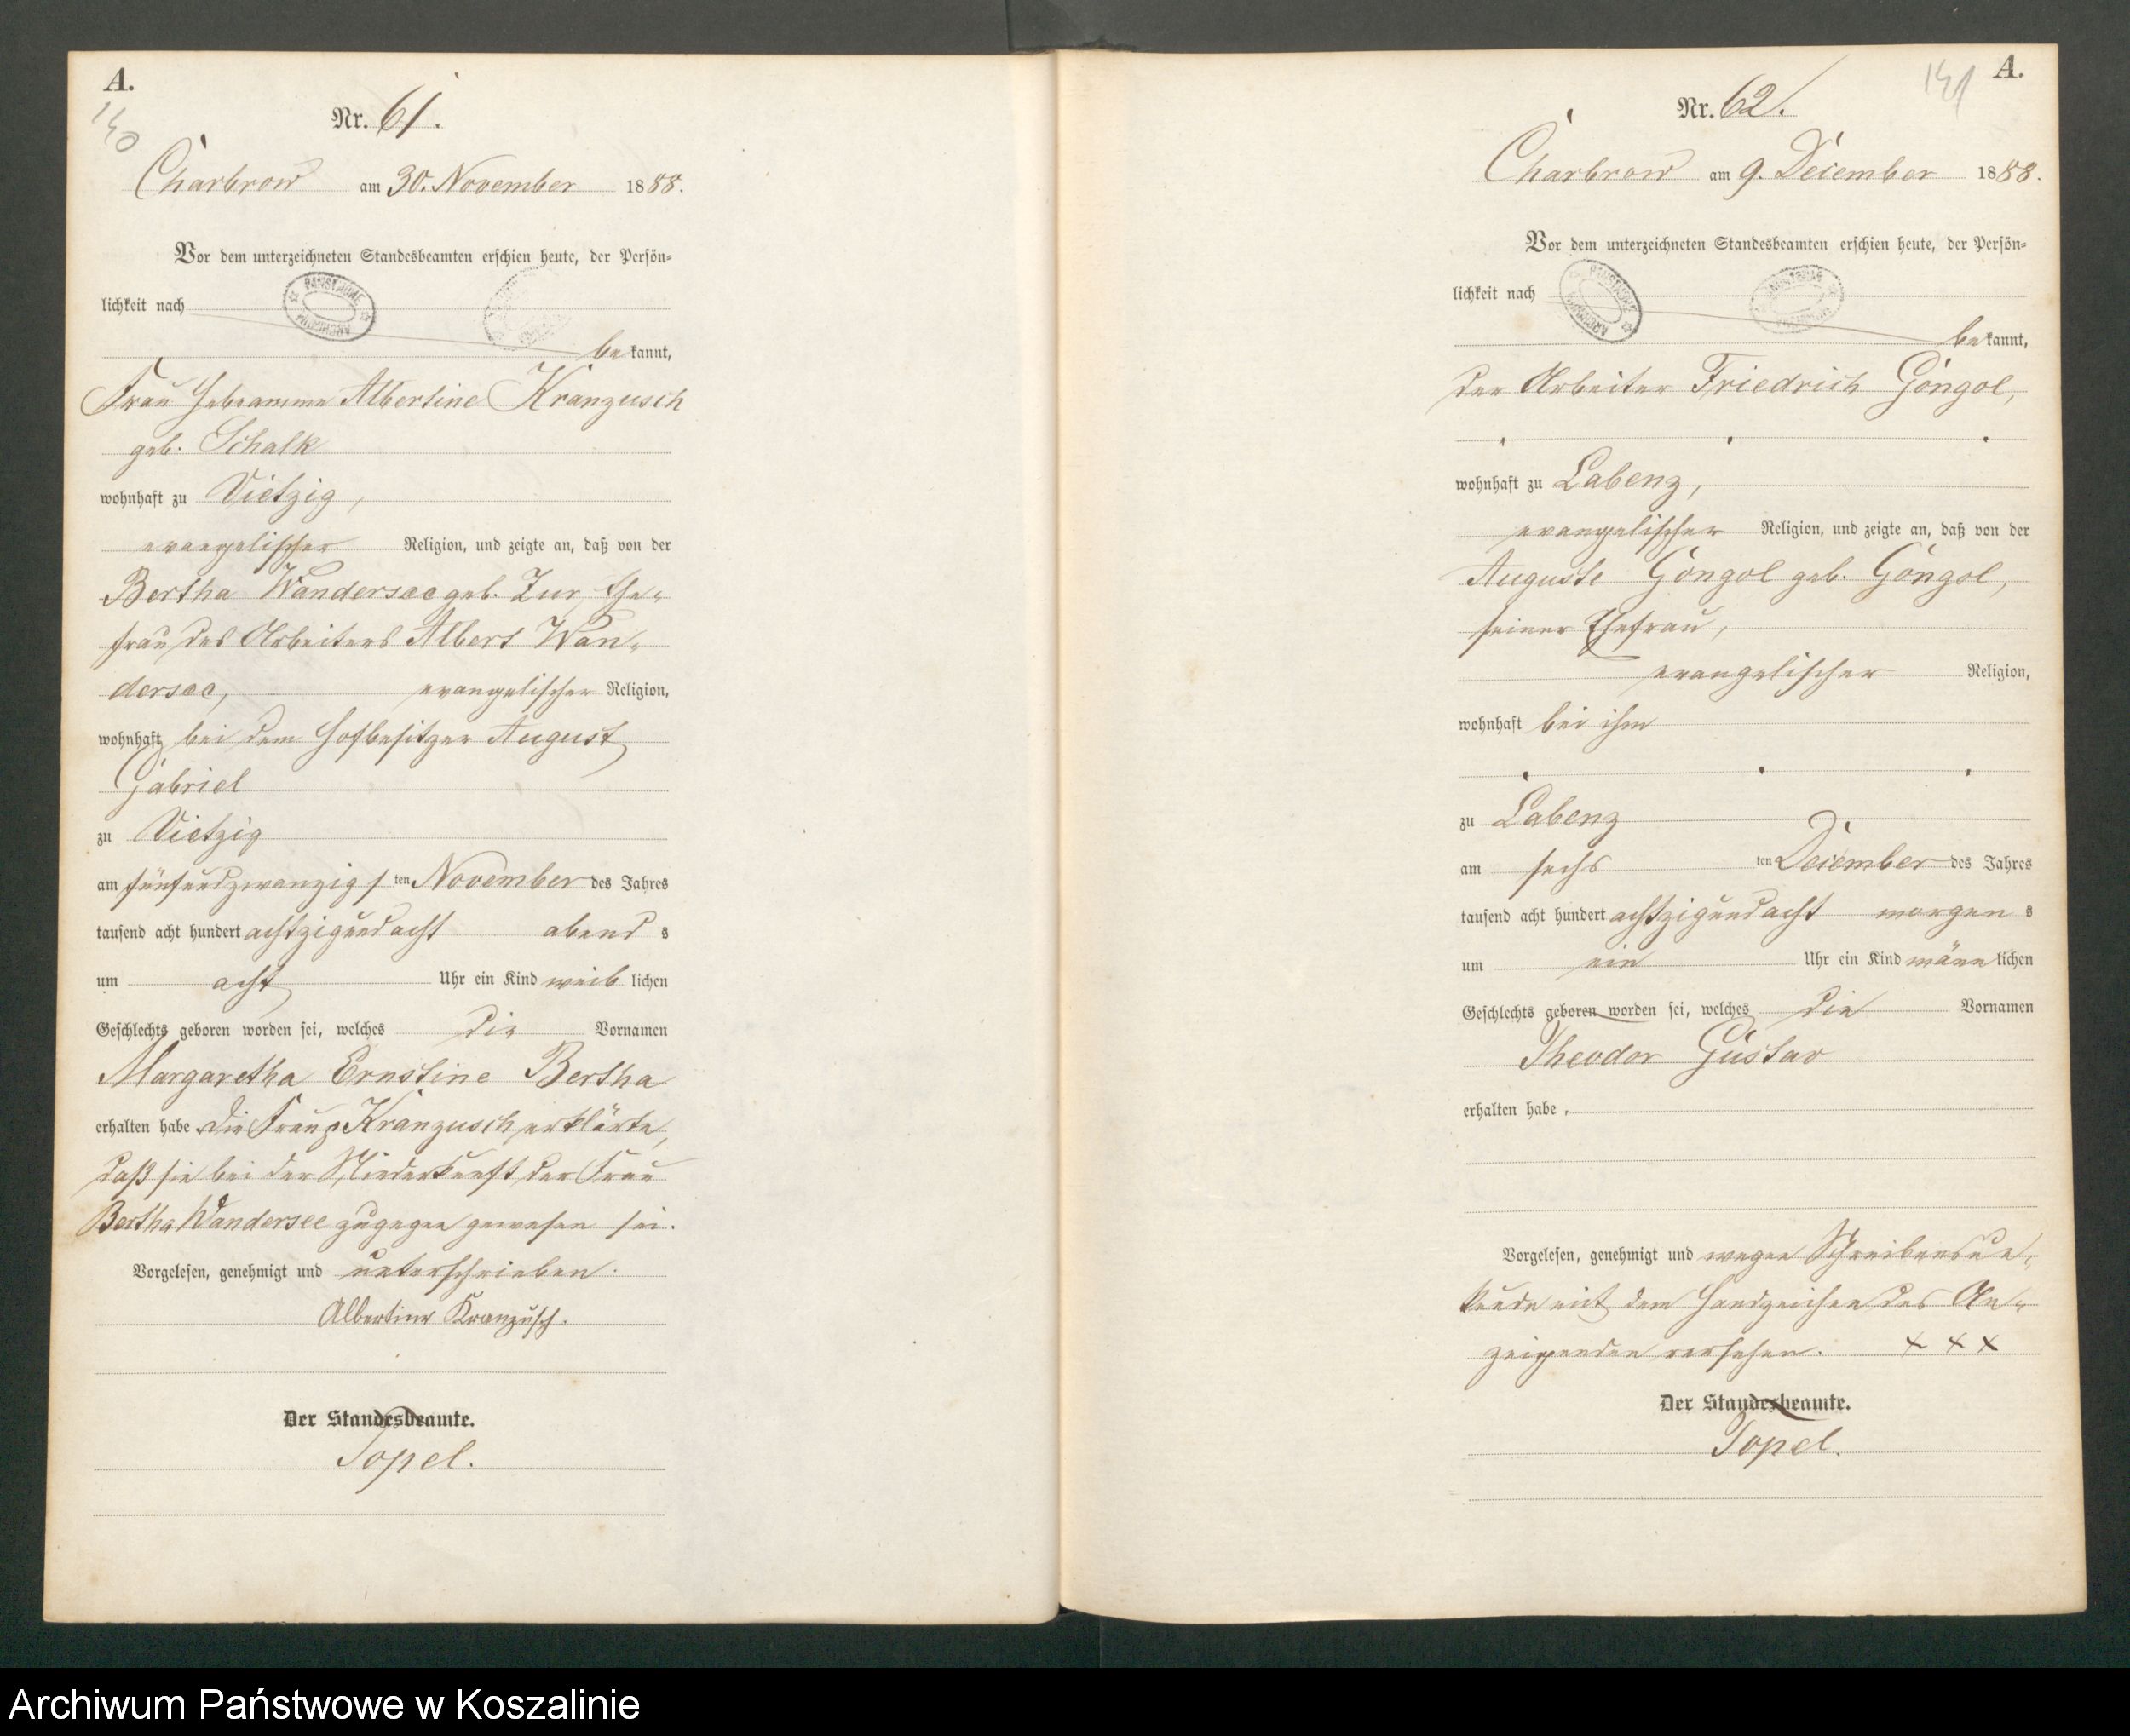 A.
140
Nr. 61.
Charbrow am 30. November 1888.
Vor dem unterzeichneten Standesbeamten erschien heute, der Persön-
lichkeit nach
bekannt,
Frau Hebeamme Albertine Kranzusch
geb. Schalk
wohnhaft zu Vietzig,
evangelischer Religion, und zeigte an, daß von der
Bertha Wandersee geb. Zur, Ehe-
frau des Arbeiters Albert Wan-
dersee, evangelischer Religion,
wohnhaft bei dem Hofbesitzer August
Gabriel
zu Vietzig
am fünfundzwanzig ten November des Jahres
tausend acht hundert achtzigundacht abends
um acht Uhr ein Kind weiblichen
Geschlechts geboren worden sei, welches die Vornamen
Margaretha Ernstine Bertha
erhalten habe. Die Frau p. Kranzusch erklärte,
daß sie bei der Niederkunft der Frau
Bertha Wandersee zugegen gewesen sei.
Vorgelesen, genehmigt und unterschrieben.
Albertine Kranzusch.
Der Standesbeamte.
Topel.
A.
141
Nr. 62.
Charbrow am 9. December 1888.
Vor dem unterzeichneten Standesbeamten erschien heute, der Persön-
lichkeit nach
bekannt,
der Arbeiter Friedrich Göngol,
wohnhaft zu Labenz,
evangelischer Religion, und zeigte an, daß von der
Auguste Göngol geb. Göngol,
seiner Ehefrau,
evangelischer Religion,
wohnhaft bei ihm
zu Labenz
am sechs ten December des Jahres
tausend acht hundert achtzigundacht morgens
um ein Uhr ein Kind männlichen
Geschlechts geboren worden sei, welches die Vornamen
Theodor Gustav
erhalten habe.
Vorgelesen, genehmigt und wegen Schreibensun-
kunde mit dem Handzeichen des An-
zeigenden versehen. + + +
Der Standesbeamte.
Topel.
Archiwum Państwowe w Koszalinie